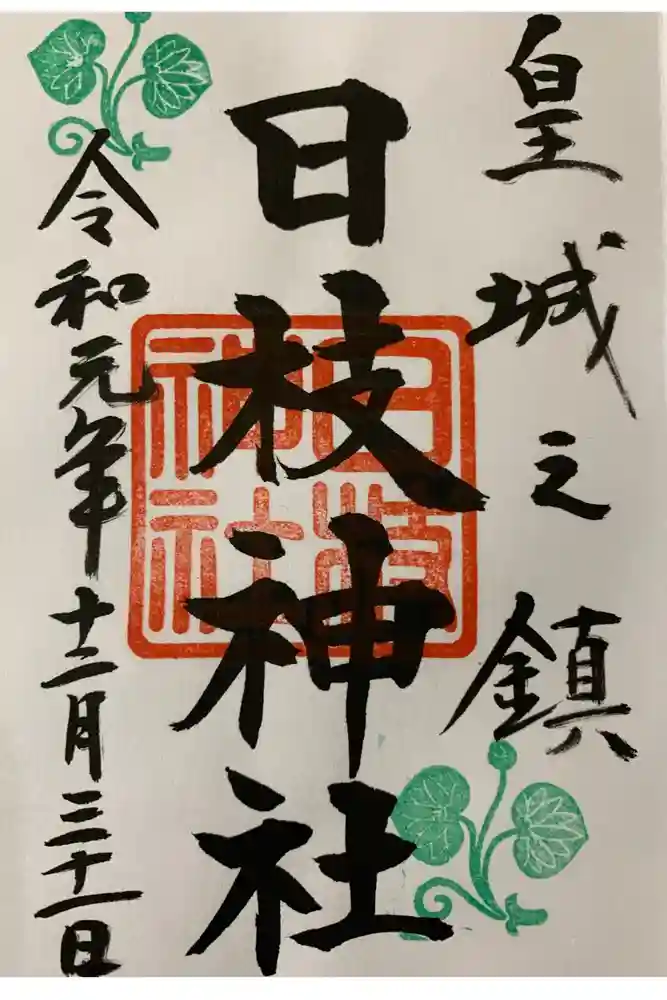 皇城之鎮
日枝神社
日枝神社
令和元年十二月三十一日